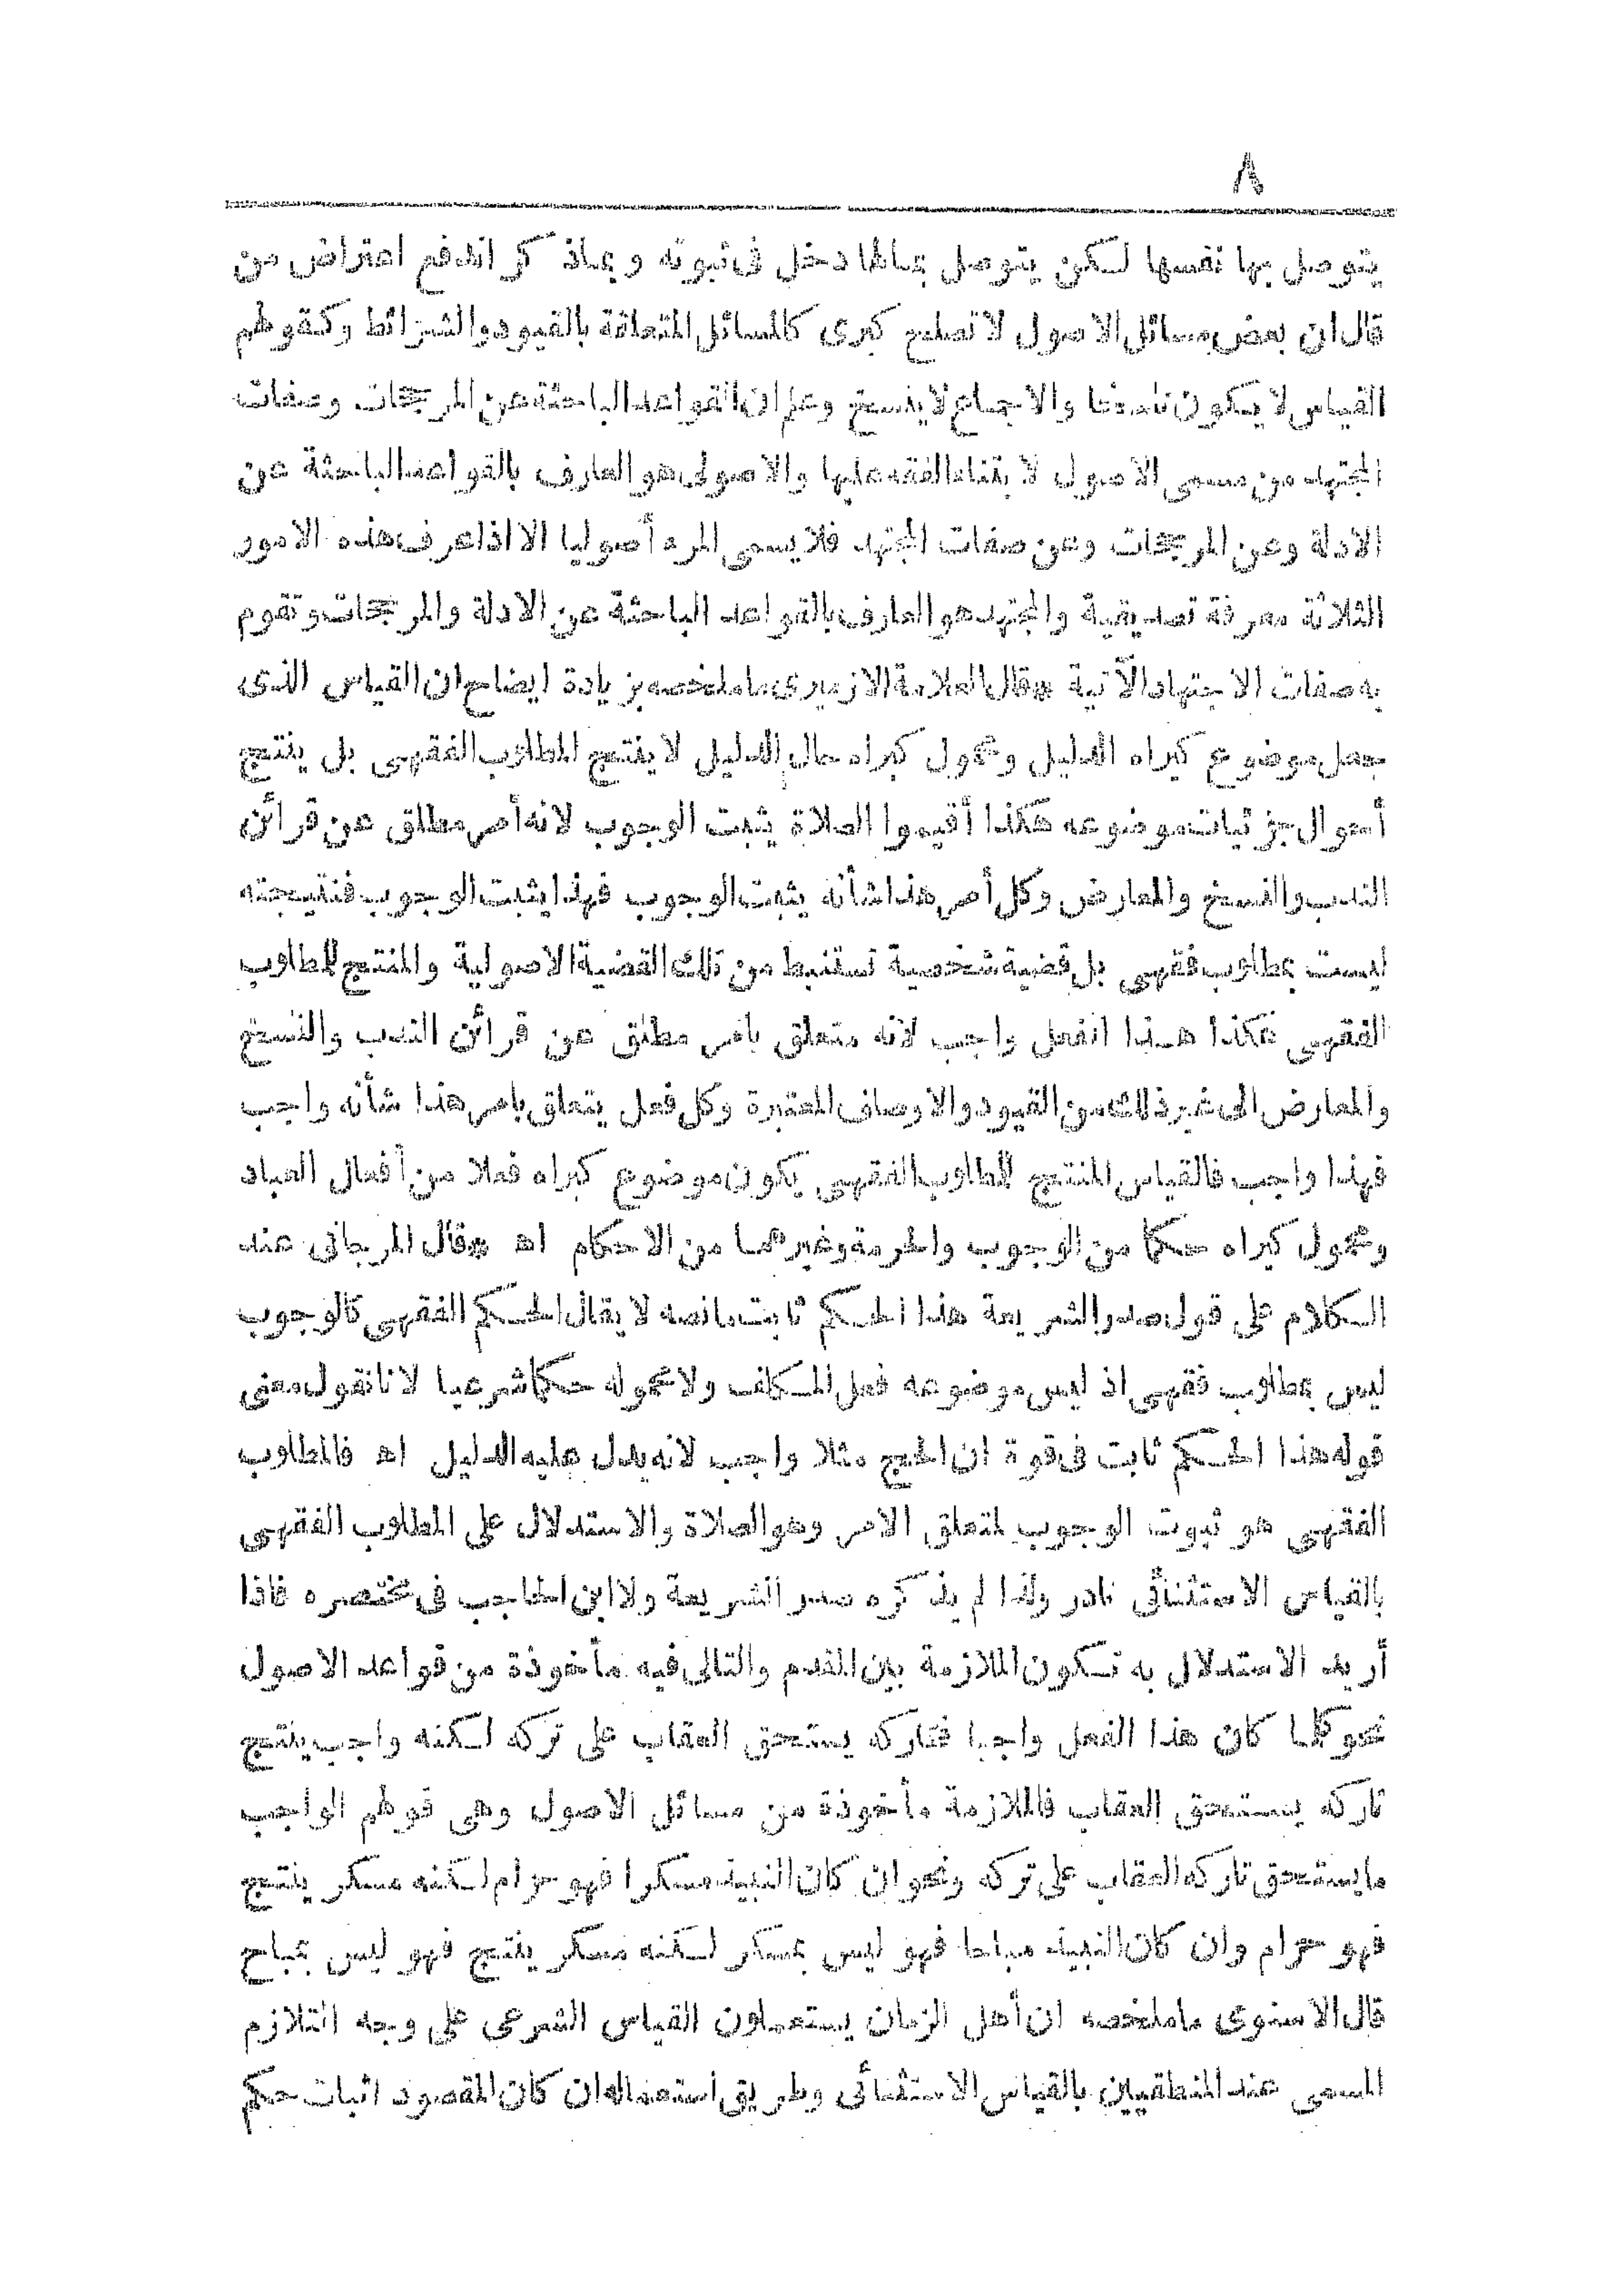 ٨
يتوصل بها نفسها لكن يتوصل بمالها دخل فى ثبوته وبماذكر اندفع اعتراض من
قال ان بعض مسائل الاصول لا تصلح كبرى كالمسائل المتعلقة بالقيود والشرائط وكقولهم
القياس لا يكون ناسخا والاجماع لا ينسخ وعلم ان القواعد الباحثة عن المرجحات وصفات
المجتهد من مسمى الاصول لابتناء الفقه عليها والاصولى هو العارف بالقواعد الباحثة عن
الادلة وعن المرجحات وعن صفات المجتهد فلا يسمى المرء أصوليا الا اذا عرف هذه الامور
الثلاثة معرفة تصديقية والمجتهد هو العارف بالقواعد الباحثة عن الادلة والمرجحات وتقوم
به صفات الاجتهاد الآتية * قال العلامة الازميرى ما ملخصه بزيادة ايضاح ان القياس الذى
جعل موضوع كبراه الدليل ومحمول كبراه حال الدليل لا ينتج المطلوب الفقهى بل ينتج
أحوال جزئيات موضوعه هكذا أقيموا الصلاة يثبت الوجوب لانه أمر مطلق عن قرائن
الندب والنسخ والمعارض وكل أمر هذا شأنه يثبت الوجوب فهذا يثبت الوجوب فنتيجته
ليست بمطلوب فقهى بل قضية شخصية تستنبط من تلك القضية الاصولية والمنتج للمطلوب
الفقهى هكذا هذا الفعل واجب لانه متعلق بامر مطلق عن قرائن الندب والنسخ
والمعارض الى غير ذلك من القيود والاوصاف المعتبرة وكل فعل يتعلق بامر هذا شأنه واجب
فهذا واجب فالقياس المنتج للمطلوب الفقهى يكون موضوع كبراه فعلا من أفعال العباد
ومحمول كبراه حكما من الوجوب والحرمة وغيرهما من الاحكام اهـ * قال المرجانى عند
الكلام على قول صدر الشريعة هذا الحكم ثابت ما نصه لا يقال الحكم الفقهى كالوجوب
ليس بمطلوب فقهى اذ ليس موضوعه فعل المكلف ولا محموله حكما شرعيا لانا نقول معنى
قوله هذا الحكم ثابت فى قوة ان الحج مثلا واجب لانه يدل عليه الدليل اهـ فالمطلوب
الفقهى هو ثبوت الوجوب لمتعلق الامر وهو الصلاة والاستدلال على المطلوب الفقهى
بالقياس الاستثنائى نادر ولذا لم يذكره صدر الشريعة ولا ابن الحاجب فى مختصره فاذا
أريد الاستدلال به تكون الملازمة بين المقدم والتالى فيه مأخوذة من قواعد الاصول
نحو كلما كان هذا الفعل واجبا فتاركه يستحق العقاب على تركه لكنه واجب ينتج
تاركه يستحق العقاب فالملازمة مأخوذة من مسائل الاصول وهى قولهم الواجب
ما يستحق تاركه العقاب على تركه ونحو ان كان النبيذ مسكرا فهو حرام لكنه مسكر ينتج
فهو حرام وان كان النبيذ مباحا فهو ليس بمسكر لكنه مسكر ينتج فهو ليس بمباح
قال الاسنوى ما ملخصه ان أهل الزمان يستعملون القياس الشرعى على وجه التلازم
المسمى عند المنطقيين بالقياس الاستثنائى وطريق استعماله ان كان المقصود اثبات حكم